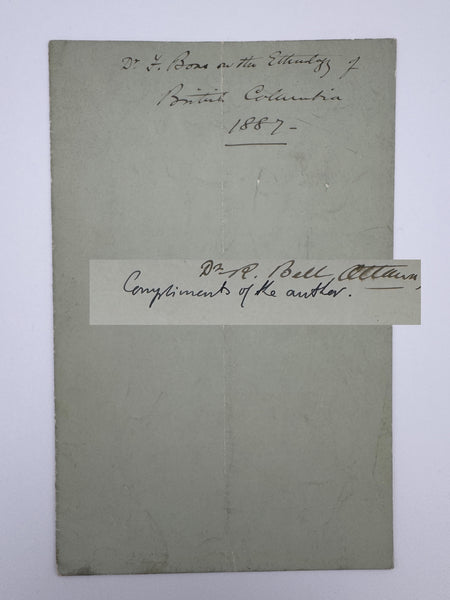 Dr. F. Boas on the Ethnology of
British Columbia
1887-
Dr. R. Bell, Ottawa,
Compliments of the author.